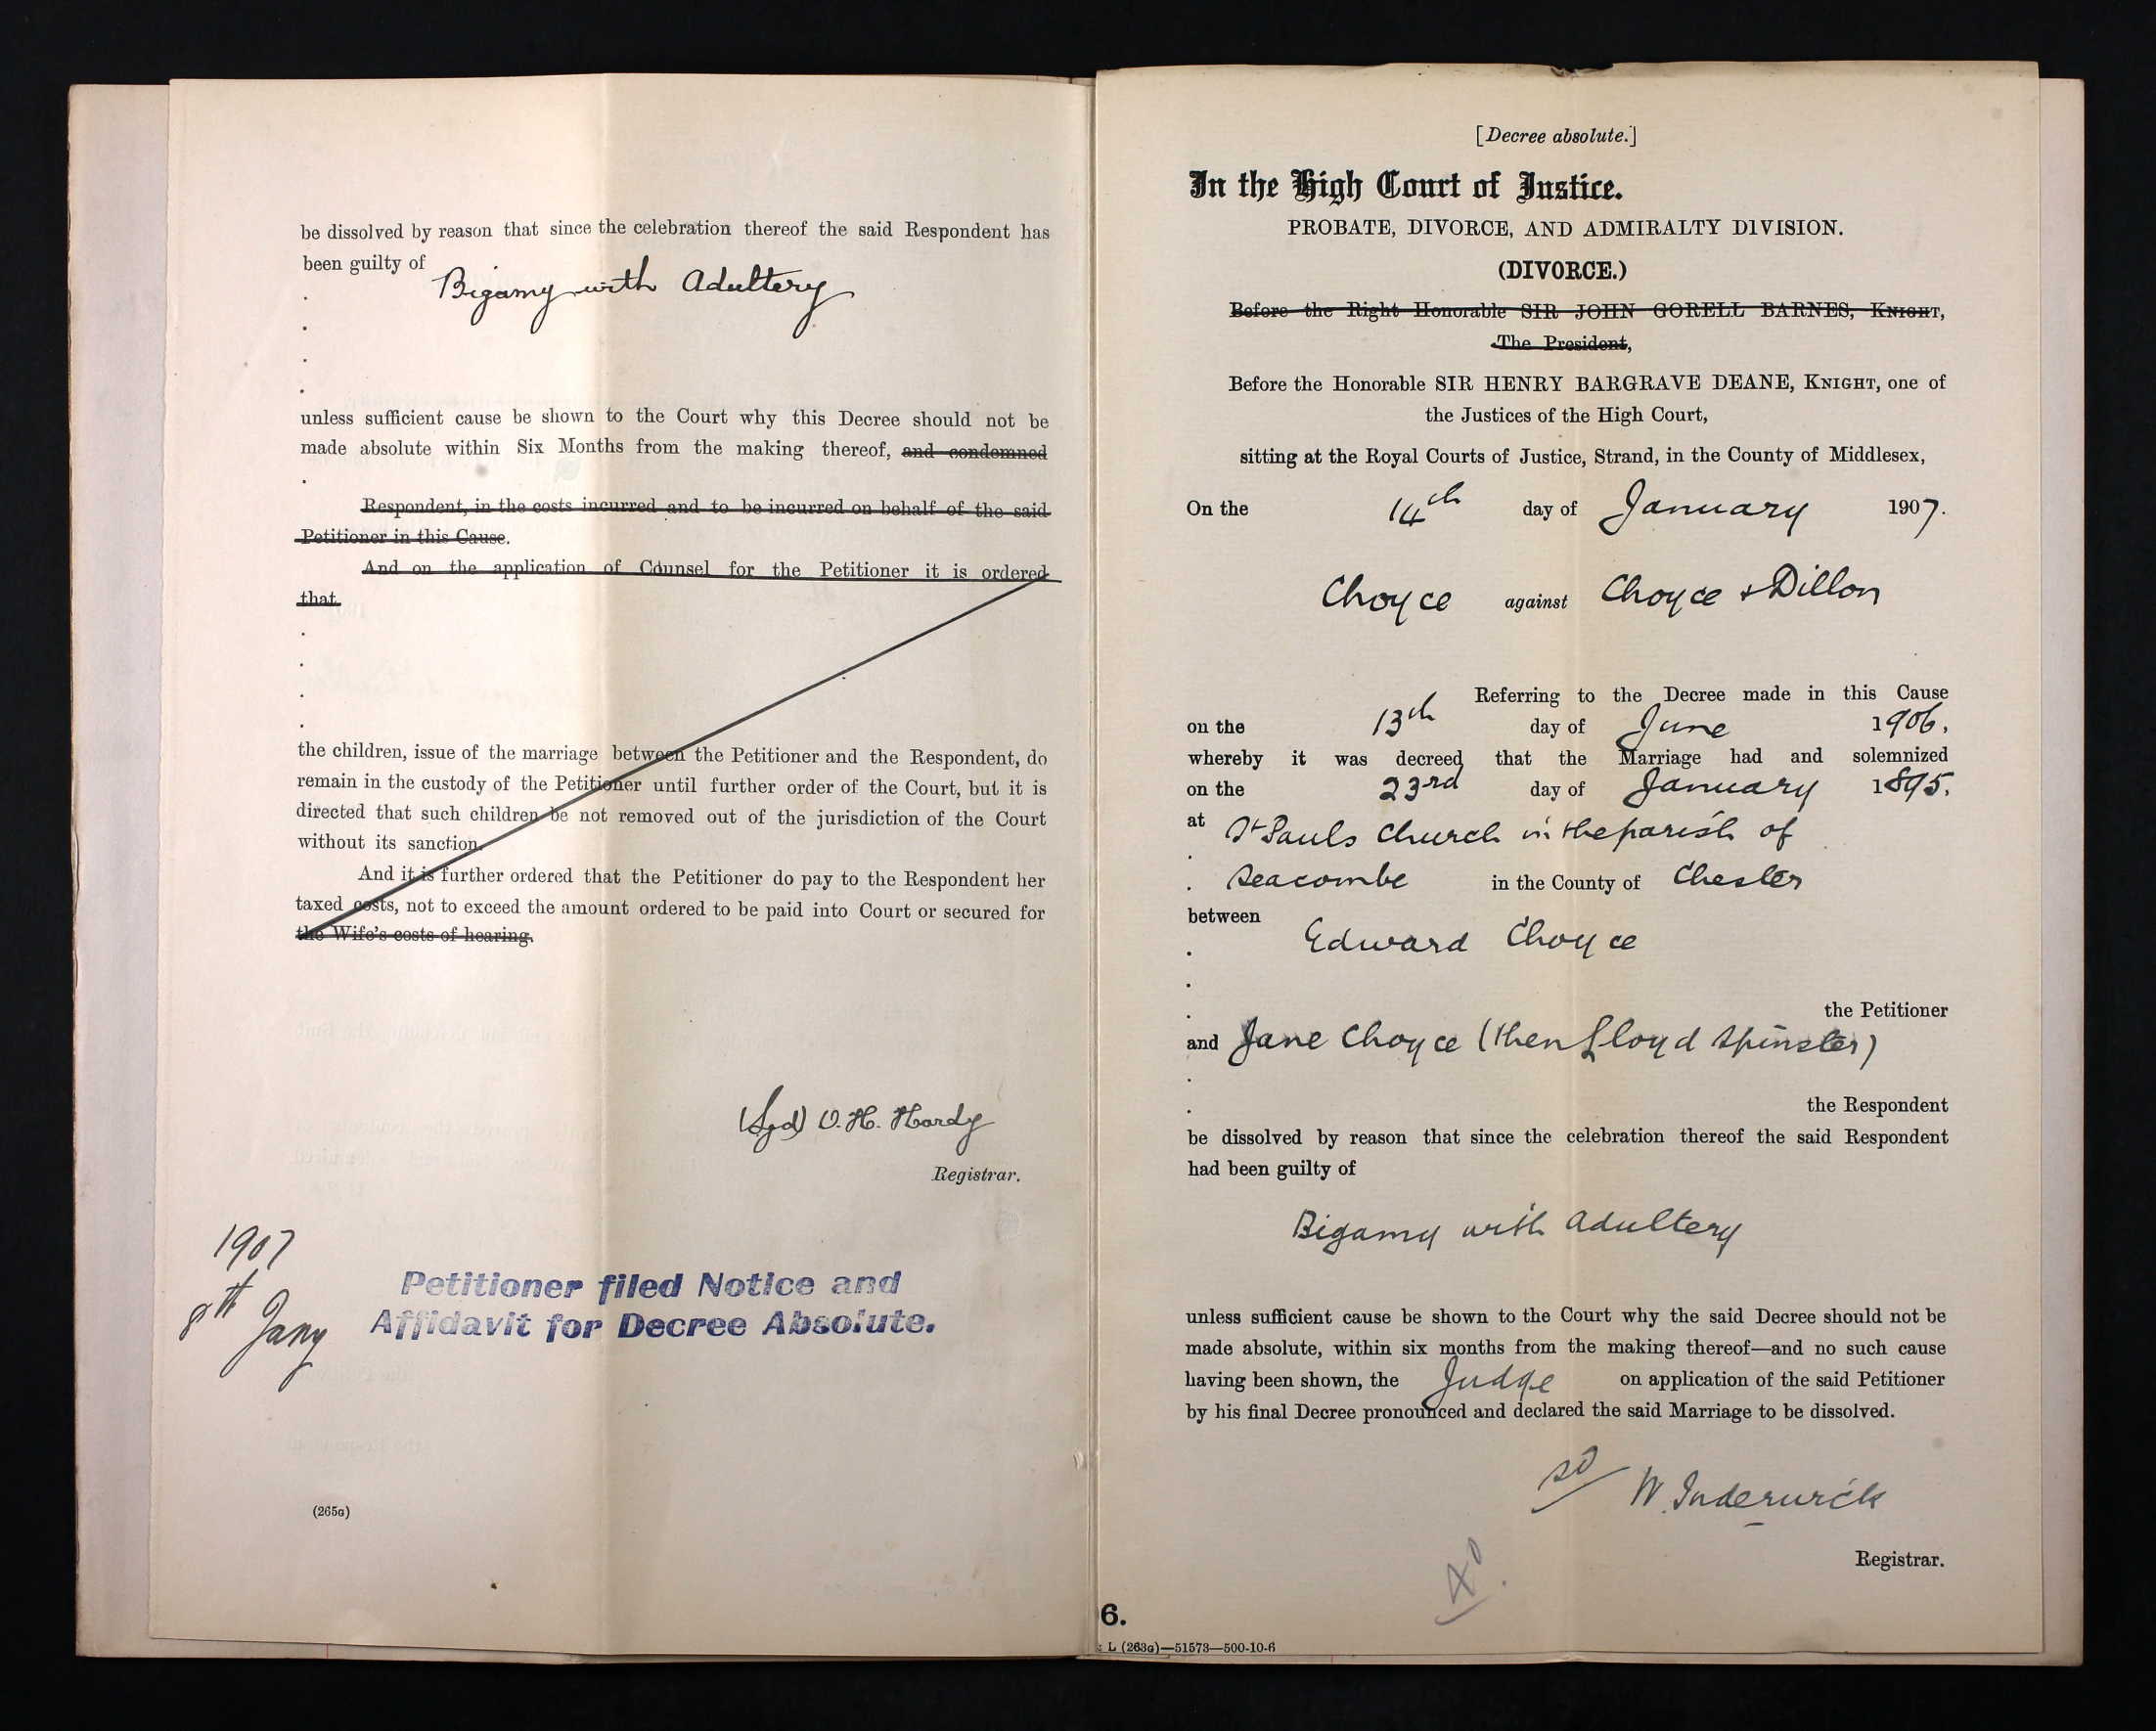 be dissolved by reason that since the celebration thereof the said Respondent has
been guilty of
Bigamy with Adultery
unless sufficient cause be shown to the Court why this Decree should not be
made absolute within Six Months from the making thereof, and condemned
Respondent, in the costs incurred and to be incurred on behalf of the said
Petitioner in this Cause.
And on the application of Counsel for the Petitioner it is ordered
that
the children, issue of the marriage between the Petitioner and the Respondent, do
remain in the custody of the Petitioner until further order of the Court, but it is
directed that such children be not removed out of the jurisdiction of the Court
without its sanction.
And it is further ordered that the Petitioner do pay to the Respondent her
taxed costs, not to exceed the amount ordered to be paid into Court or secured for
the Wife's costs of hearing.
(Sgd) O. H. Hardy
Registrar.
1907
8th Jany
Petitioner filed Notice and
Affidavit for Decree Absolute.
(265G)
[Decree absolute.]
In the High Court of Justice.
PROBATE, DIVORCE, AND ADMIRALTY DIVISION.
(DIVORCE.)
Before the Right Honorable SIR JOHN GORELL BARNES, KNIGHT,
The President,
Before the Honorable SIR HENRY BARGRAVE DEANE, KNIGHT, one of
the Justices of the High Court,
sitting at the Royal Courts of Justice, Strand, in the County of Middlesex,
On the 14th day of January 1907.
Choyce against Choyce & Dillon
Referring to the Decree made in this Cause
on the 13th day of June 1906.
whereby it was decreed that the Marriage had and solemnized
on the 23rd day of January 1895.
at St Pauls Church in the parish of
Seacombe in the County of Chester
between
Edward Choyce
the Petitioner
and Jane Choyce (then Lloyd Spinster)
the Respondent
be dissolved by reason that since the celebration thereof the said Respondent
had been guilty of
Bigamy with adultery
unless sufficient cause be shown to the Court why the said Decree should not be
made absolute, within six months from the making thereof—and no such cause
having been shown, the Judge on application of the said Petitioner
by his final Decree pronounced and declared the said Marriage to be dissolved.
W. Inderwick
Registrar.
6.
L (263G)—51573—500-10-6